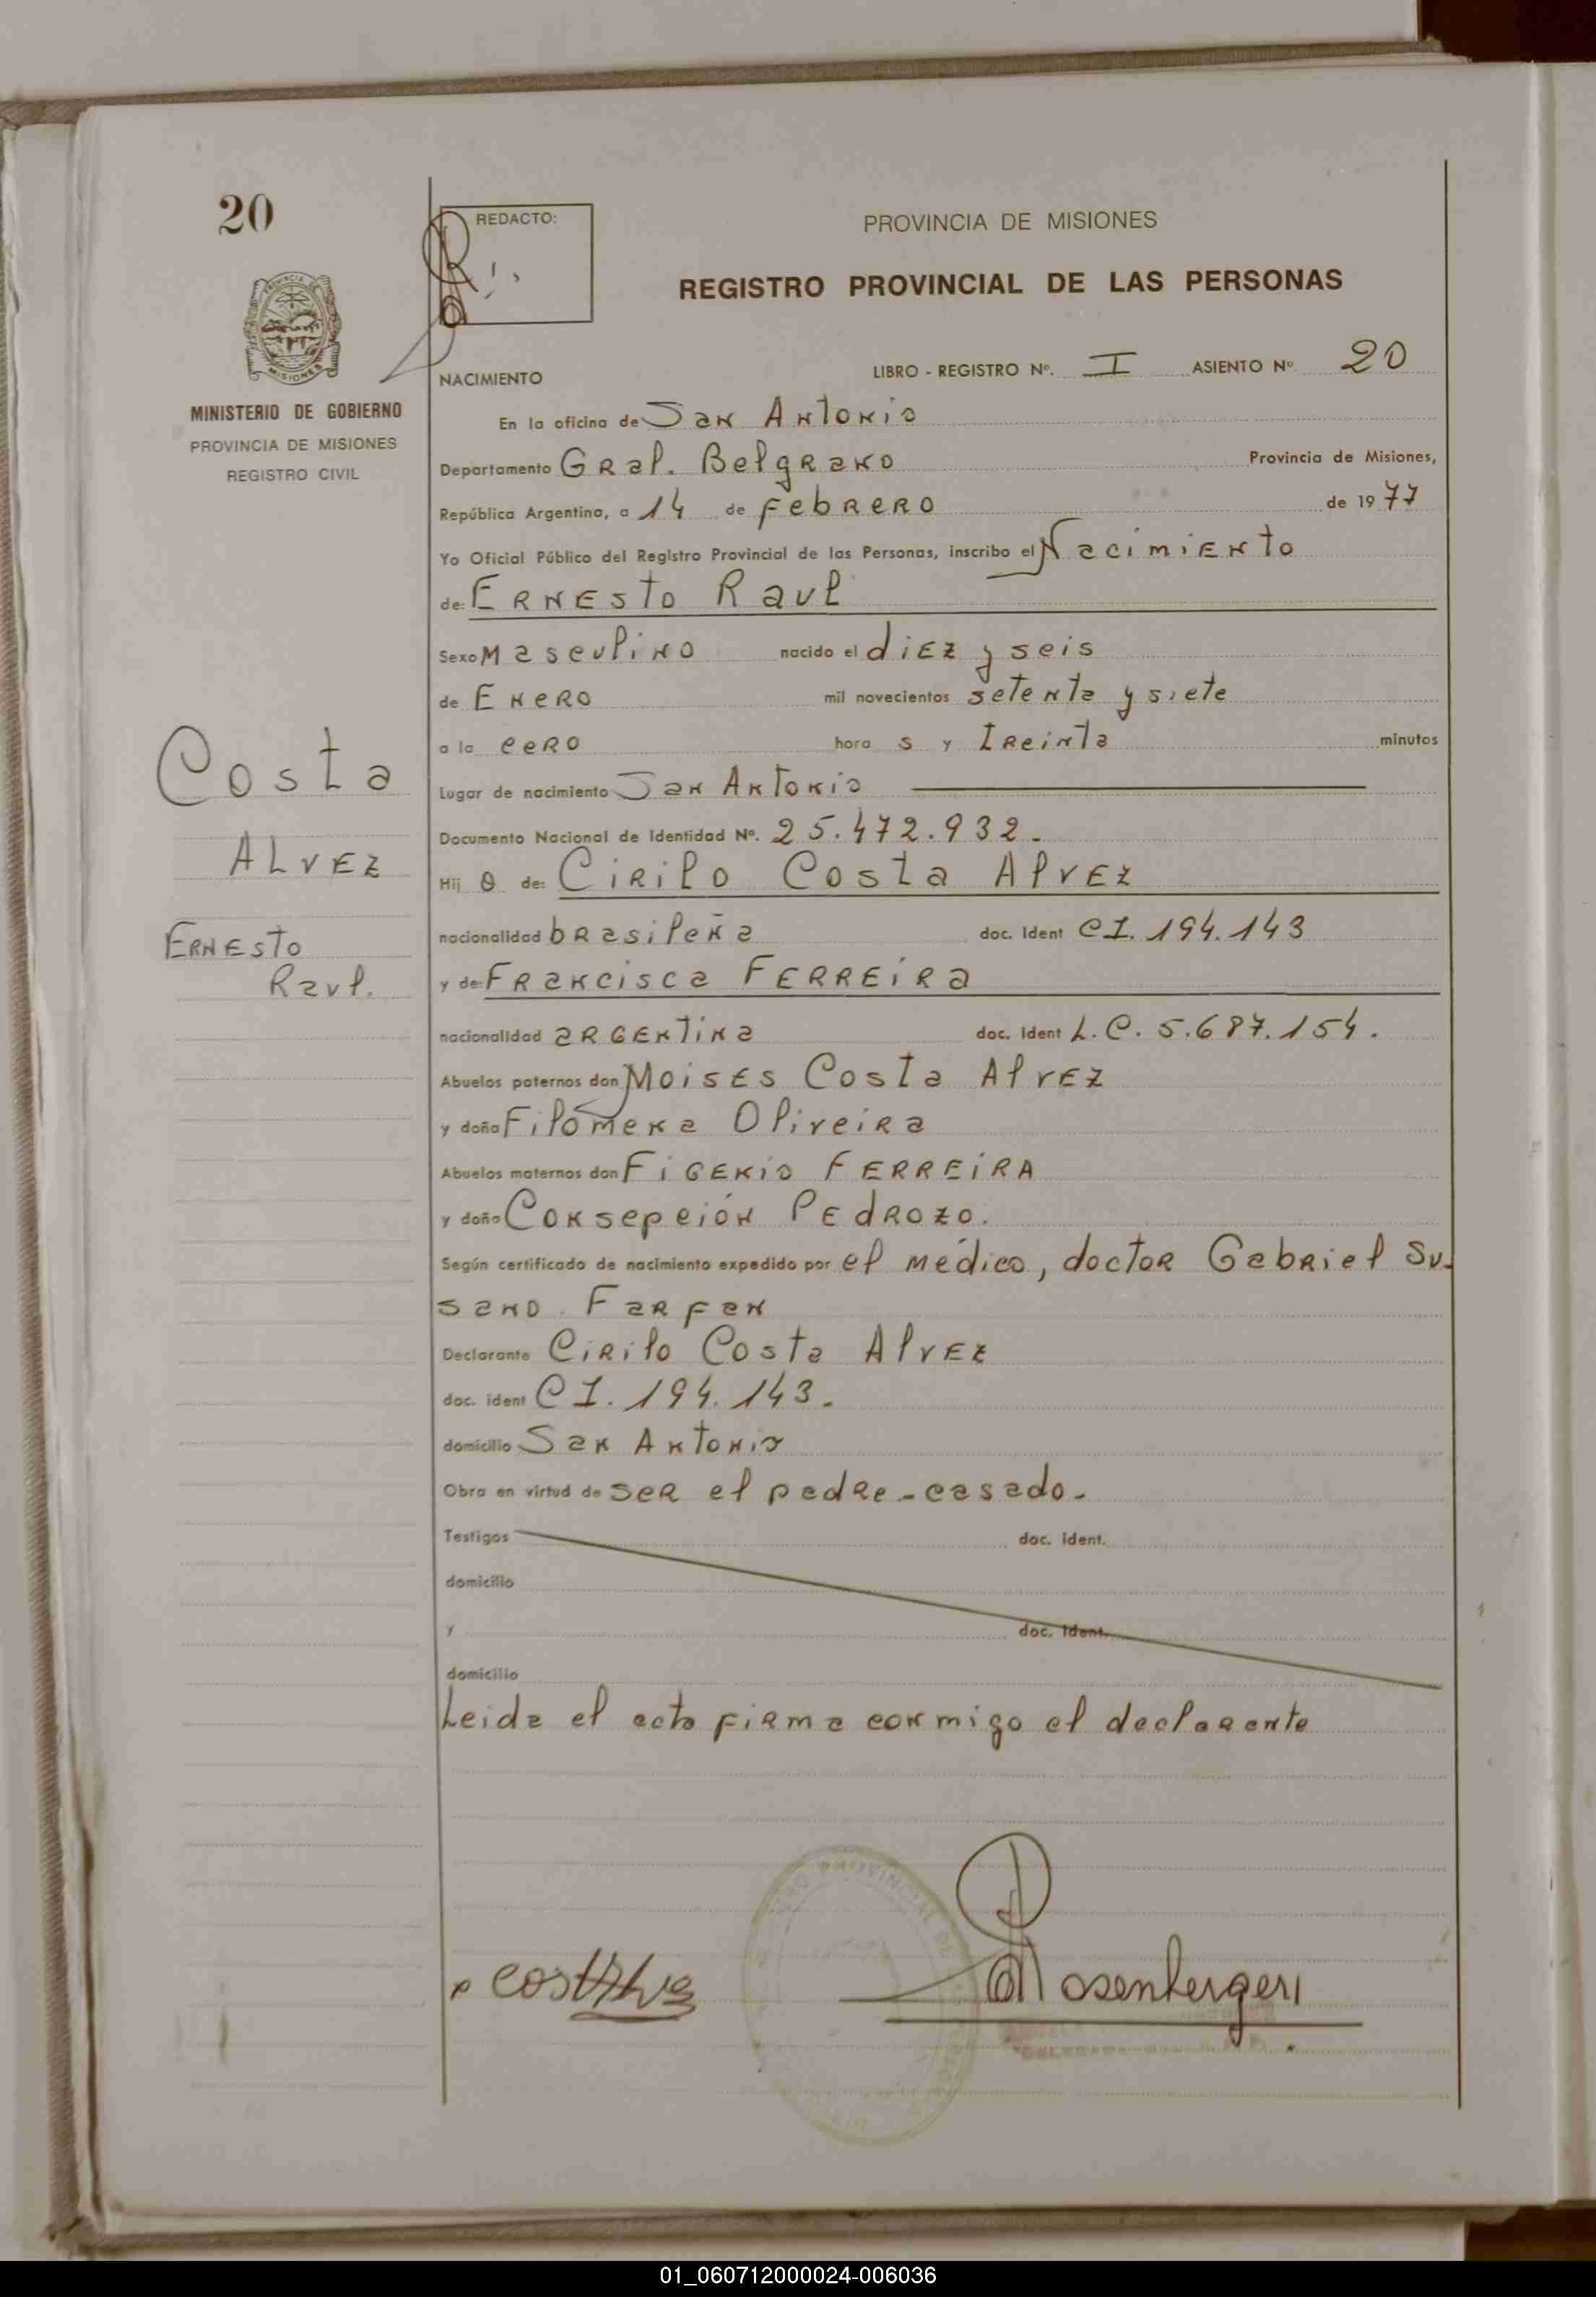 20
REDACTO:
PROVINCIA DE MISIONES
REGISTRO PROVINCIAL DE LAS PERSONAS
MISIONES
MINISTERIO DE GOBIERNO
PROVINCIA DE MISIONES
REGISTRO CIVIL
NACIMIENTO LIBRO - REGISTRO Nº. I ASIENTO Nº 20
En la oficina de San Antonio
Departamento Gral. Belgrano Provincia de Misiones,
República Argentina, a 14 de Febrero de 1977
Yo Oficial Público del Registro Provincial de las Personas, inscribo el Nacimiento
de: Ernesto Raul
Sexo Masculino nacido el diez y seis
de Enero mil novecientos setenta y siete
a la cero hora s y Treinta minutos
Lugar de nacimiento San Antonio
Documento Nacional de Identidad Nº. 25.472.932.
Hij o de: Cirilo Costa Alvez
nacionalidad brasileña doc. Ident CI. 194.143
y de: Francisca FERREIRA
nacionalidad argentina doc. Ident L.C. 5.687.154.
Abuelos paternos don Moises Costa Alvez
y doña Filomena Oliveira
Abuelos maternos don Figenio FERREIRA
y doña Consepción Pedrozo.
Según certificado de nacimiento expedido por el médico, doctor Gabriel Su-
sano Farfan
Declarante Cirilo Costa Alvez
doc. ident CI. 194.143.
domicilio San Antonio
Obra en virtud de ser el padre - casado.
Testigos doc. ident.
domicilio
y doc. ident.
domicilio
Leida el acta firma conmigo el declarante
Costa
ALVEZ
Ernesto
Raul.
01_060712000024-006036